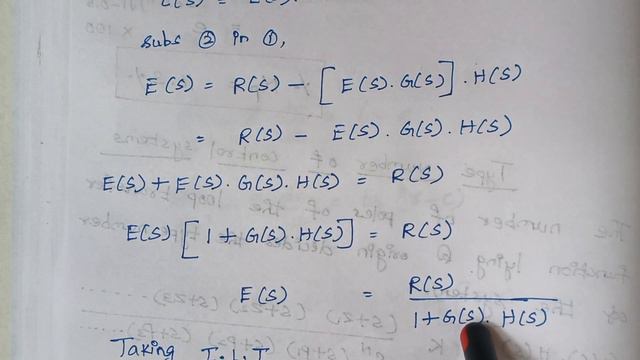 subs ② in ①,
E(S) = R(S) - [E(S). G(S)] . H(S)
= R(S) - E(S). G(S). H(S)
E(S) + E(S). G(S). H(S) = R(S)
E(S) [1 + G(S). H(S)] = R(S)
E(S) = R(S) / 1+G(S). H(S)
Taking